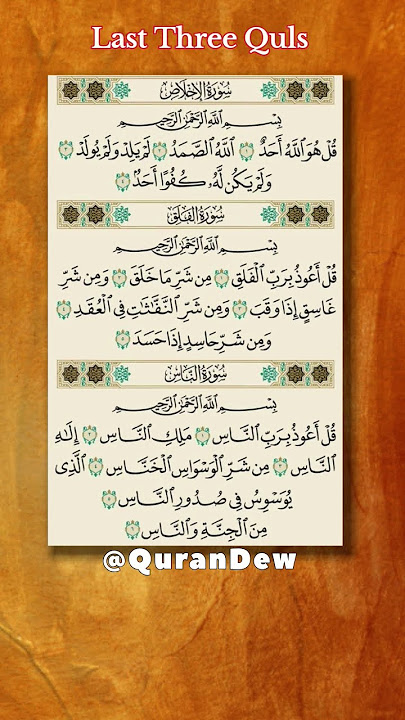 Last Three Quls
سُورَةُ الإِخْلَاصِ
بِسْمِ ٱللَّهِ ٱلرَّحْمَٰنِ ٱلرَّحِيمِ
قُلْ هُوَ ٱللَّهُ أَحَدٌ ١ ٱللَّهُ ٱلصَّمَدُ ٢ لَمْ يَلِدْ وَلَمْ يُولَدْ ٣
وَلَمْ يَكُن لَّهُۥ كُفُوًا أَحَدٌۢ ٤
سُورَةُ الفَلَقِ
بِسْمِ ٱللَّهِ ٱلرَّحْمَٰنِ ٱلرَّحِيمِ
قُلْ أَعُوذُ بِرَبِّ ٱلْفَلَقِ ١ مِن شَرِّ مَا خَلَقَ ٢ وَمِن شَرِّ
غَاسِقٍ إِذَا وَقَبَ ٣ وَمِن شَرِّ ٱلنَّفَّٰثَٰتِ فِي ٱلْعُقَدِ ٤
وَمِن شَرِّ حَاسِدٍ إِذَا حَسَدَ ٥
سُورَةُ النَّاسِ
بِسْمِ ٱللَّهِ ٱلرَّحْمَٰنِ ٱلرَّحِيمِ
قُلْ أَعُوذُ بِرَبِّ ٱلنَّاسِ ١ مَلِكِ ٱلنَّاسِ ٢ إِلَٰهِ
ٱلنَّاسِ ٣ مِن شَرِّ ٱلْوَسْوَاسِ ٱلْخَنَّاسِ ٤ ٱلَّذِي
يُوَسْوِسُ فِي صُدُورِ ٱلنَّاسِ ٥
مِنَ ٱلْجِنَّةِ وَٱلنَّاسِ ٦
@QuranDew